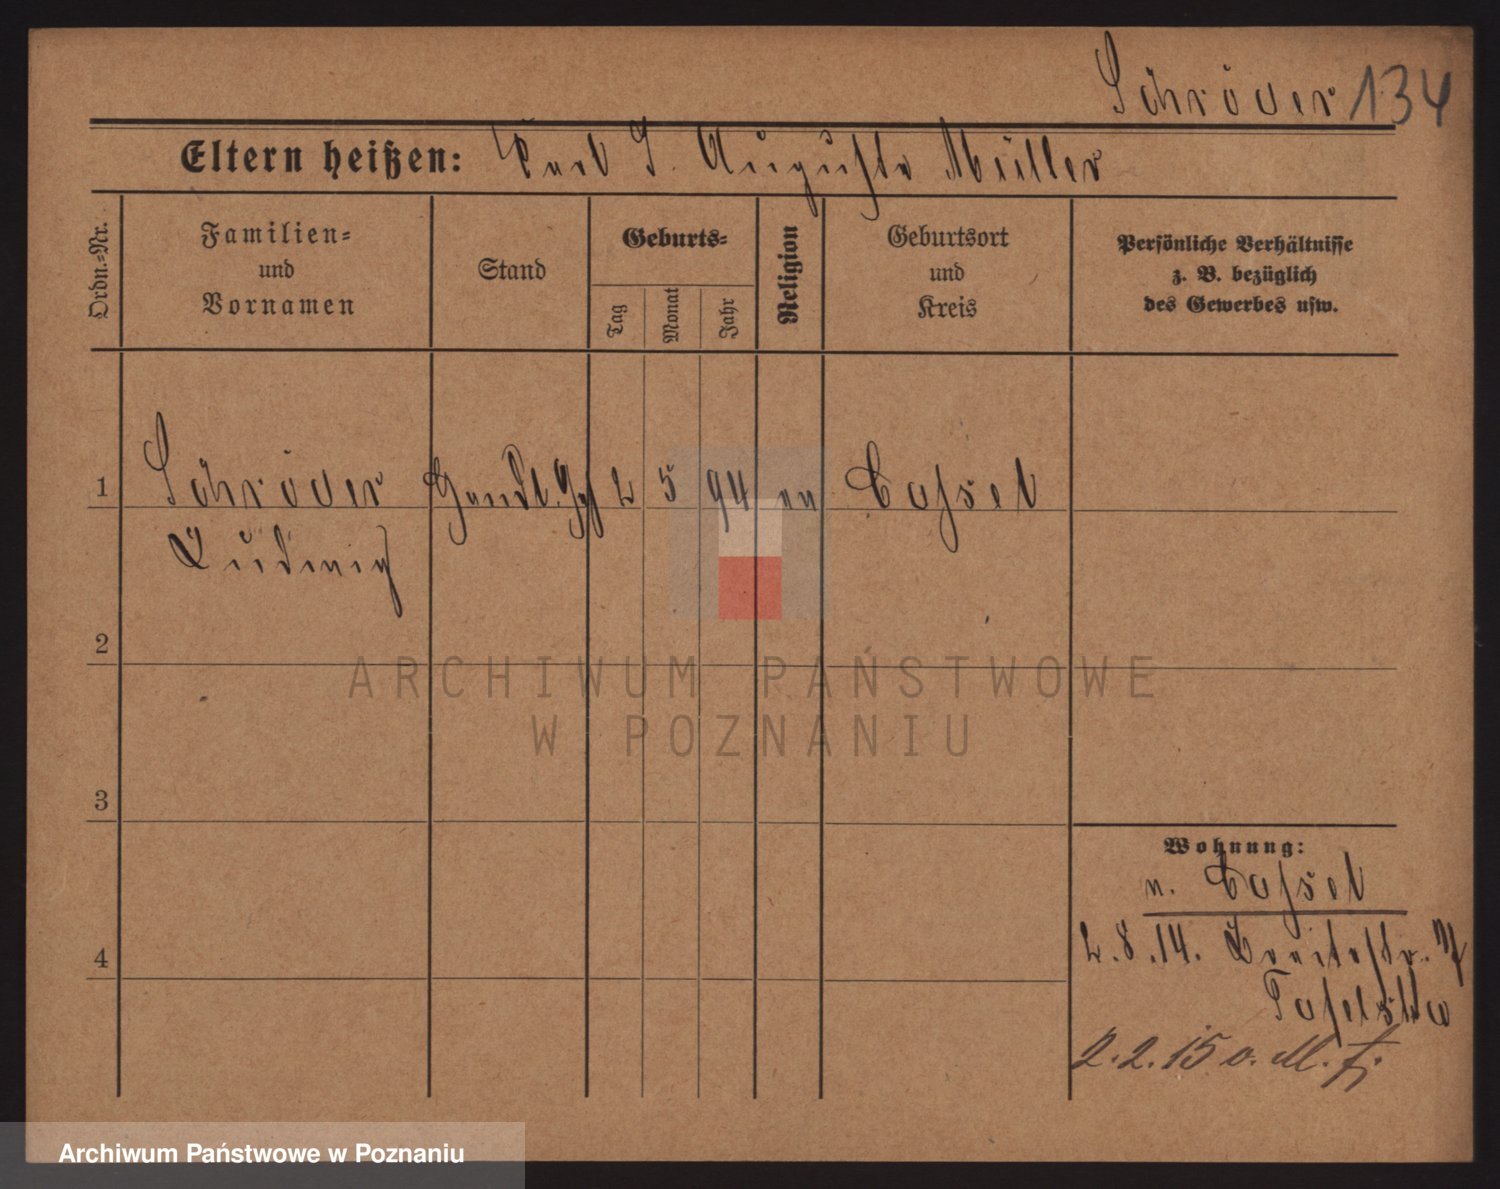 Schröder 134
Eltern heißen: Karl S. Auguste Müller
Ordn.-Nr.
Familien-
und
Vornamen
Stand
Geburts-
Tag
Monat
Jahr
Religion
Geburtsort
und
Kreis
Persönliche Verhältnisse
z. B. bezüglich
des Gewerbes usw.
1 Schröder Handl. Gh 2 5 94 ev Cassel
Ludwig
2
ARCHIWUM PAŃSTWOWE
W POZNANIU
3
Wohnung:
n. Cassel
4
2.8.14. Breitestr.
2.2.15 v. M.
Archiwum Państwowe w Poznaniu